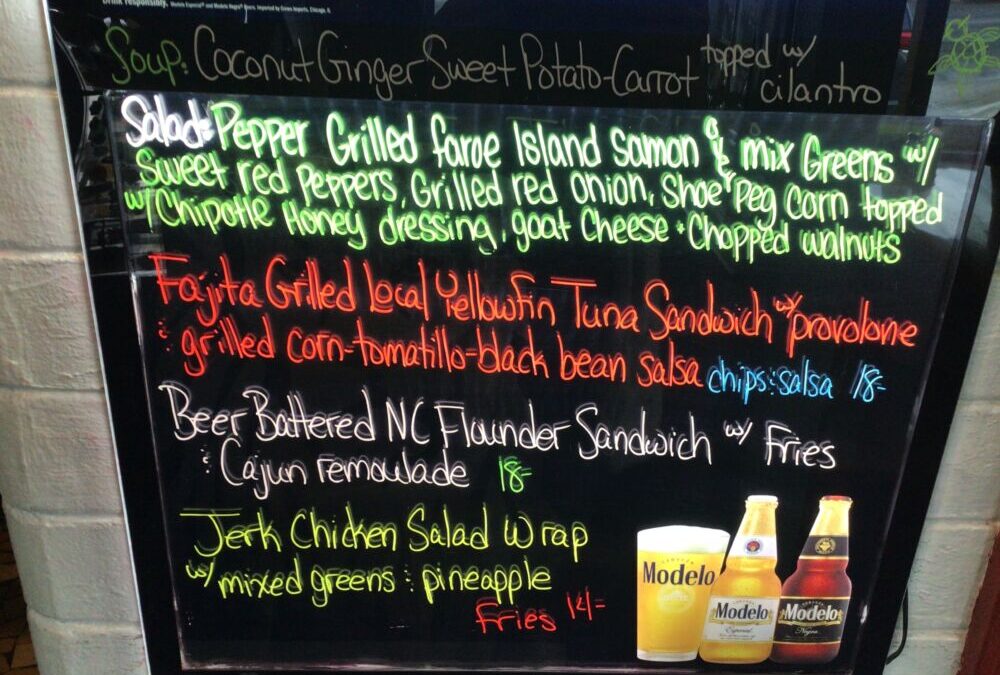 Drink responsibly. Modelo Especial® and Modelo Negra® Beers. Imported by Crown Imports, Chicago, IL
Soup: Coconut Ginger Sweet Potato-Carrot topped w/
cilantro
Salad: Pepper Grilled faroe Island Samon & mix Greens w/
Sweet red Peppers, Grilled red onion, Shoe Peg Corn topped
w/ Chipotle Honey dressing, goat Cheese + Chopped walnuts
Fajita Grilled Local Yellowfin Tuna Sandwich w/ provolone
& grilled corn-tomatillo-black bean salsa chips & salsa 18-
Beer Battered NC Flounder Sandwich w/ Fries
& Cajun remoulade 18-
Jerk Chicken Salad Wrap
w/ mixed greens & pineapple
Fries 14-
Modelo
Modelo
Especial
Modelo
Negra